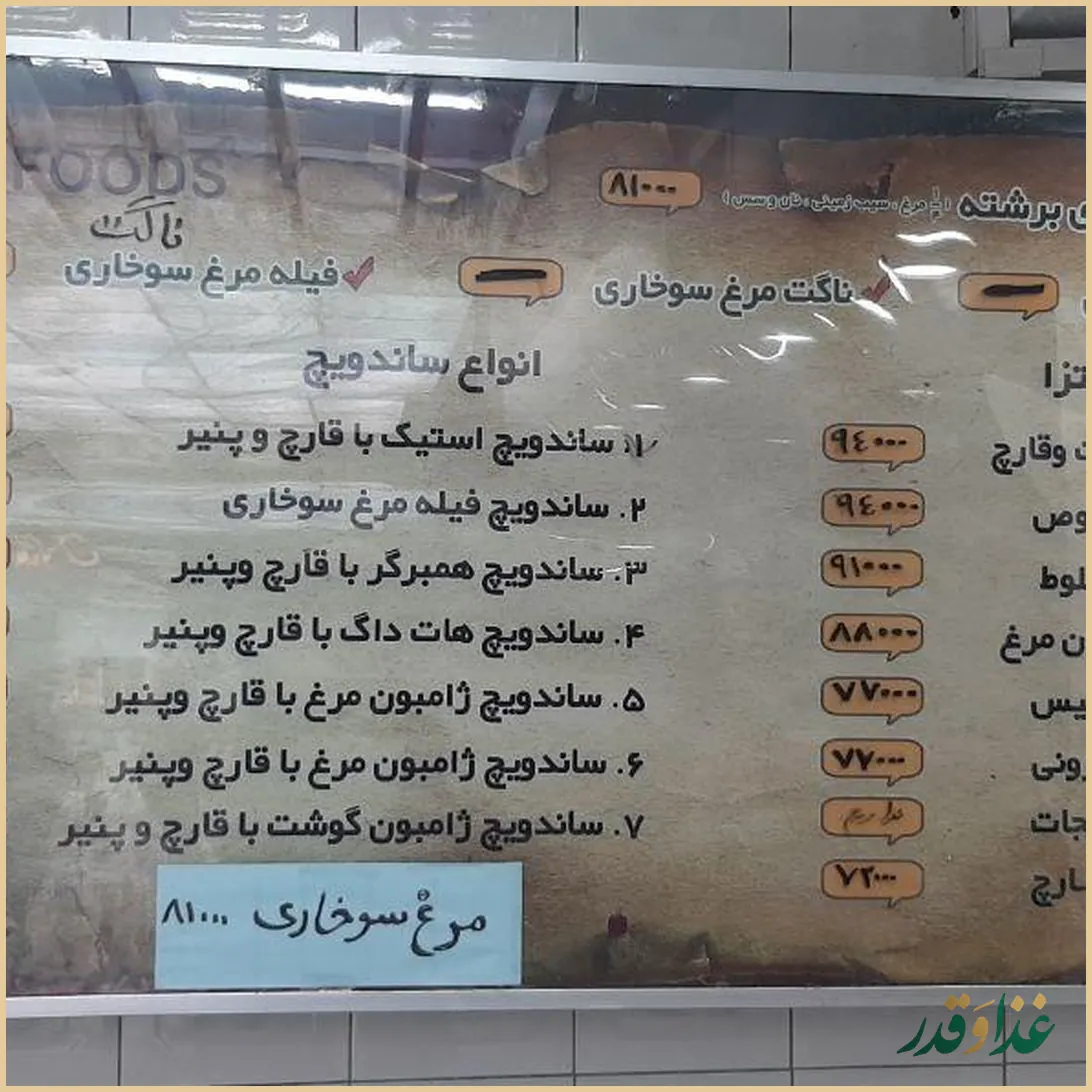 FOODS
ی برشته ( ¼ مرغ ، سیب زمینی ، نان و سس ) ۸۱۰۰۰
ناگت
ناگت مرغ سوخاری
فیله مرغ سوخاری
تزا
وقارچ ۹٤۰۰۰
وص ۹٤۰۰۰
لوط ۹۱۰۰۰
ن مرغ ۸۸۰۰۰
یس ۷۷۰۰۰
ونی ۷۷۰۰۰
جات نداریم
ارچ ۷۲۰۰۰
انواع ساندویچ
۱. ساندویچ استیک با قارچ و پنیر
۲. ساندویچ فیله مرغ سوخاری
۳. ساندویچ همبرگر با قارچ وپنیر
۴. ساندویچ هات داگ با قارچ وپنیر
۵. ساندویچ ژامبون مرغ با قارچ وپنیر
۶. ساندویچ ژامبون مرغ با قارچ وپنیر
۷. ساندویچ ژامبون گوشت با قارچ و پنیر
مرغ سوخاری ۸۱۰۰۰
غذا و قدر